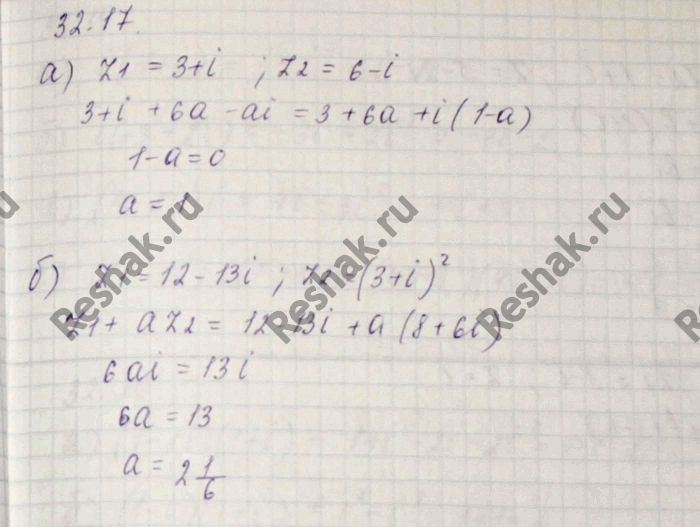 32.17.
а) z1 = 3+i ; z2 = 6-i
3+i +6a -ai = 3 +6a +i(1-a)
1-a=0
a = 1
б) z1 = 12-13i ; z2 = (3+i)²
z1 + a z2 = 12-13i +a (8+6i)
6ai = 13i
6a = 13
a = 2 1/6
Reshak.ru
Reshak.ru
Reshak.ru
Reshak.ru
Reshak.ru